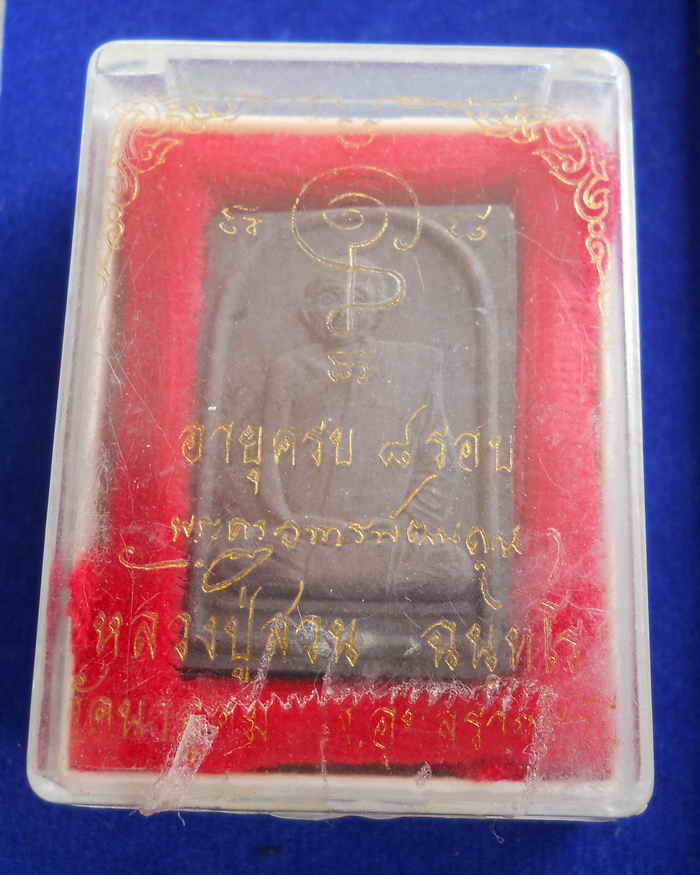 อายุครบ ๘ รอบ
พระครูอาทรพัฒนคุณ
หลวงปู่สวน ฉนฺทโร
วัดนาอุดม จ.อุบลราชธานี